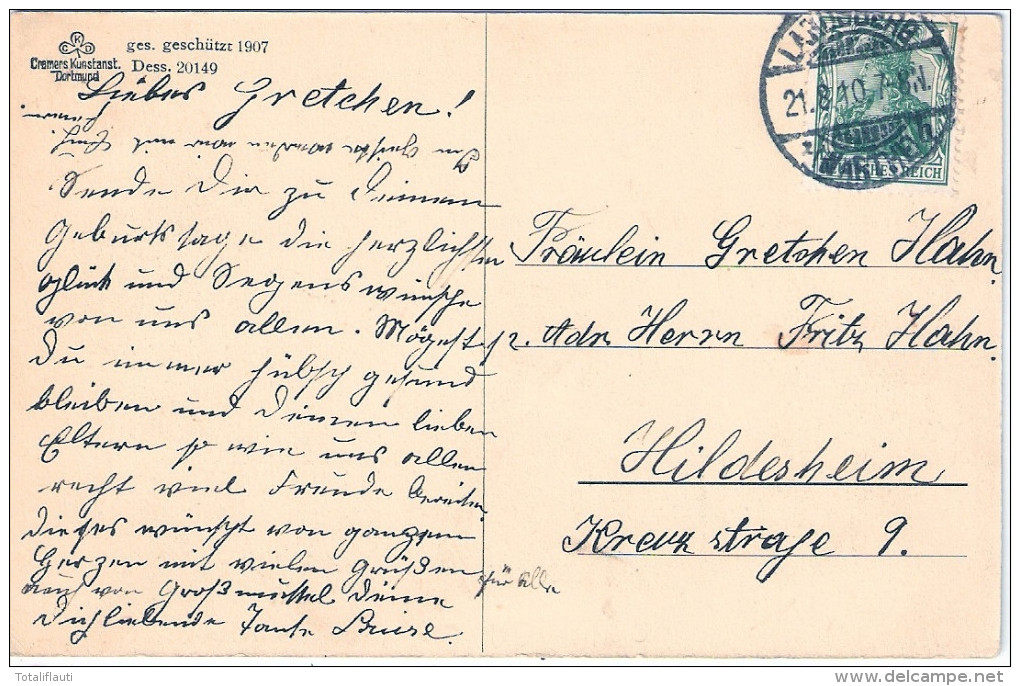 K
C D
Cramers Kunstanst.
Dortmund
ges. geschützt 1907
Dess. 20149
LANDSBERG
21.8.10.7-8N.
*(WARTHE)b.
DEUTSCHES REICH
Liebes Gretchen!
Sende Dir zu Deinem
Geburtstage die herzlichsten
Glück und Segenswünsche
von uns allen. Mögest
Du immer hübsch gesund
bleiben und Deinen lieben
Eltern so wie uns allen
recht viel Freude bereiten.
Dieses wünscht von ganzem
Herzen mit vielen Grüßen
auch von Großmuttel Deine
Dichliebende Tante
für Alle
Fräulein Gretchen Hahn.
Adr. Herrn Fritz Hahn.
Hildesheim
Kreuzstraße 9.
Totaliflauti
delcampe.net